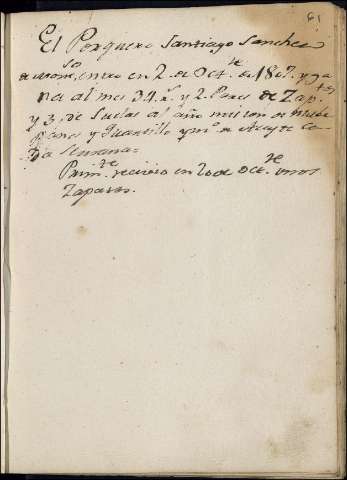 61
El Porquero Santiago Sanchez
entro en 2 de Octre de 1807. y ga
na al mes 34 rs. y 2. Pares de Zaptos
y 3. de Suelas al año mision de media
Panes y Quartillo y mo de Aceyte ca
da Semana=
Primte recivio en 20 de Octre unos
Zapatos.